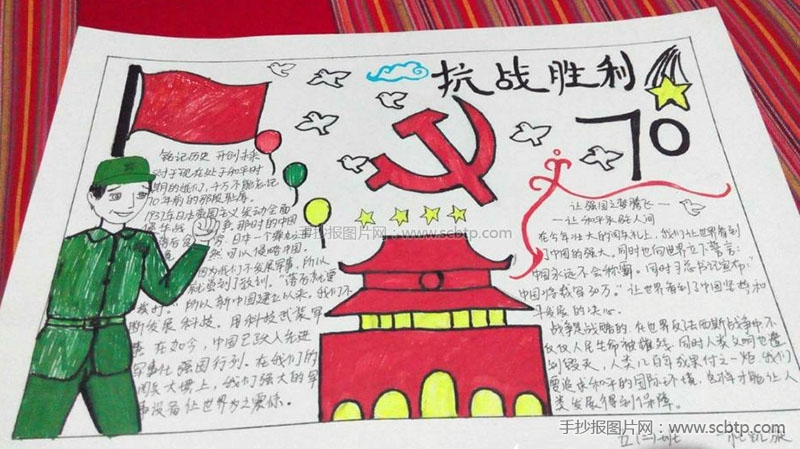 抗战胜利
70
铭记历史 开创未来
对于现在处于和平时
期的我们,千万不能忘记
70年前的那段耻辱。
1937年日本帝国主义发动全面
侵华战争,那时的中国
日本一个
然可以侵略中国。
因为我们不发展军事,所以
就受到了教训。"落后就要
挨打。"所以新中国建立以来,我们不
断发展科技。用科技武装军
事。在如今,中国已跨入先进
军事化强国行列。在我们的
阅兵大增上,我们强大的军
事设备让世界为之震惊。
让强国之梦腾飞——
——让和平永驻人间
在今年壮大的周年礼上,我们让世界看到
了中国的强大。同时也向世界立下誓言:
中国永远不会称霸。同时习总书记宣布:"
中国将裁军30万。"让世界看到了中国坚持和
平发展的决心。
战争是残酷的,在世界反法西斯战争中不
仅仅人民生命被摧残。同时人类文明也遭
到毁灭,人类几百年成果付之一炬。我们
要追求和平的国际环境,这样才能让人
类发展得到保障。
五(二)班
手抄报图片网:www.scbtp.com
手抄报图片网:www.scbtp.com